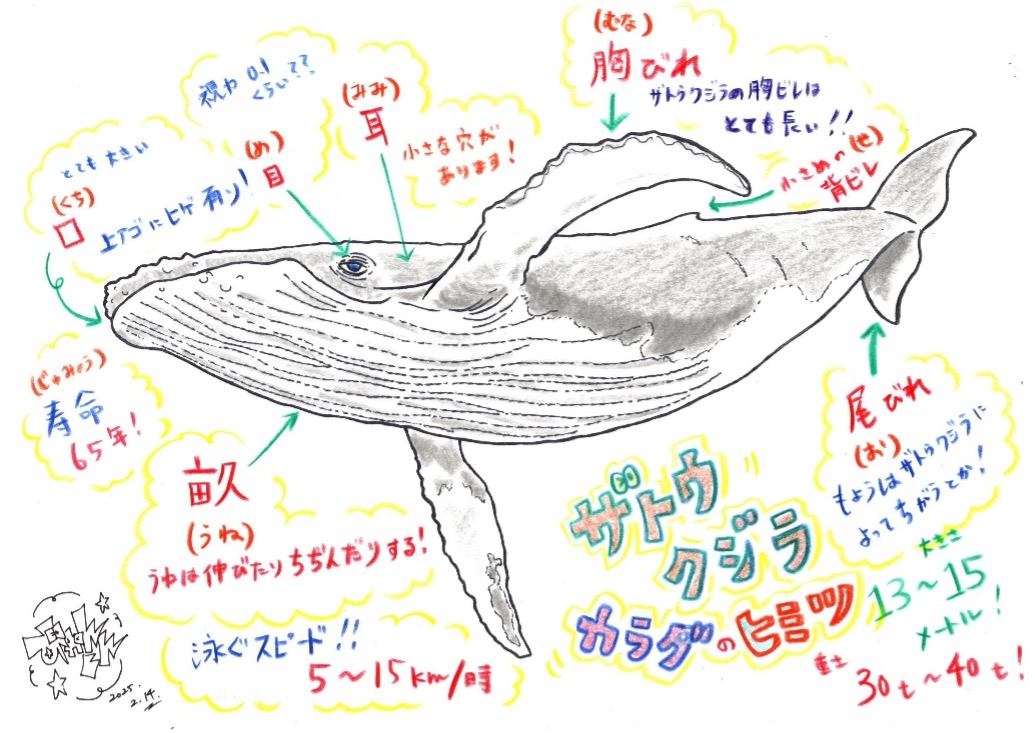 とても大きい
(くち)
口
上アゴにヒゲ有り!
視力 0.1
くらい??
(め)
目
(みみ)
耳
小さな穴が
あります!
(むな)
胸びれ
ザトウクジラの胸ビレは
とても長い!!
小さめの(せ)
背ビレ
(じゅみょう)
寿命
65年!
畝
(うね)
うねは伸びたりちぢんだりする!
泳ぐスピード!!
5〜15km/時
尾びれ
(お)
もようはザトウクジラに
よってちがうとか!
ザトウ
クジラ
カラダのヒミツ
大きさ
13〜15
メートル!
重さ
30t〜40t!
2025.
2.14.